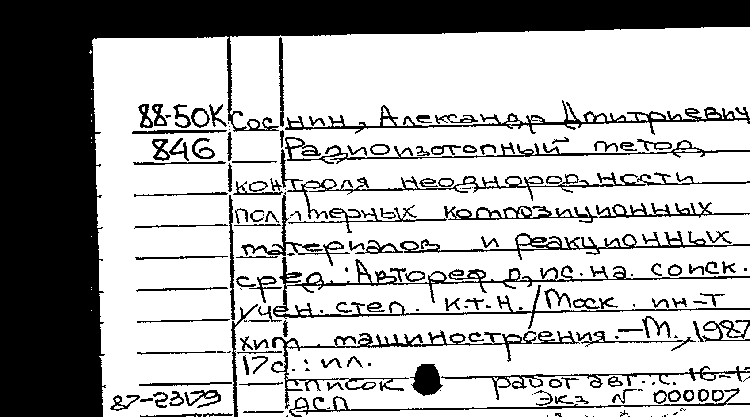 88-50К Соснин, Александр Дмитриевич
846 Радиоизотопный метод
контроля неоднородности
полимерных композиционных
материалов и реакционных
сред.: Автореф. дис. на соиск.
учен. степ. к.т.н. / Моск. ин-т
хим. машиностроения. — М., 1987
17с.: ил.
список работ авт.: с. 16-17
87-23179 ДСП Экз N 000007